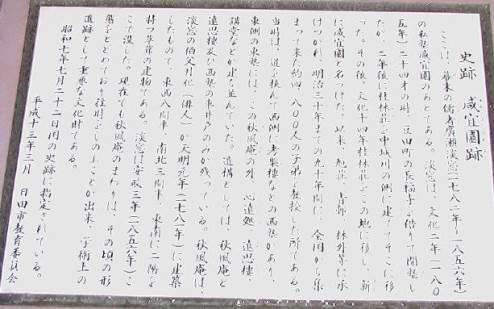 史跡 咸宜園跡
ここは、幕末の儒者廣瀬淡窓(一七八二年〜一八五六年)
の私塾咸宜園のあとである。淡窓は、文化二年(一八〇
五年)二十四才の時、豆田町の長福寺を借りて開塾し
たが、二年後に桂林荘を中城川の側に建て、そこに移
った。その後、文化十四年桂林荘をこの地に移し、新
に咸宜園と名づけた。以来、旭荘、青邨、林外等に承
けつがれ、明治三十年までの九十年間に、全国から集
まって来た約四、八〇〇人の子弟を教授した所である。
当時は、道を挟んで西側に考槃楼などの西塾があり、
東側の東塾には、この秋風庵の外、心遠処、遠思楼、
講堂などが建ち並んでいた。遺構としては、秋風庵と
遠思楼及び西塾の車井戸のみが残っている。秋風庵は、
淡窓の伯父月化(俳人)が天明元年(一七八一年)に建築
したもので、東西八間半、南北三間半、東南に二階を
持つ草葺の建物である。淡窓は安政三年(一八五六年)こ
こで没した。現在でも秋風庵のまわりは、その頃の形
態をとどめており往時をしのぶことが出来、学術上の
遺跡として重要な文化財である。
昭和七年七月二十三日国の史跡に指定されている。
平成十三年三月 日田市教育委員会